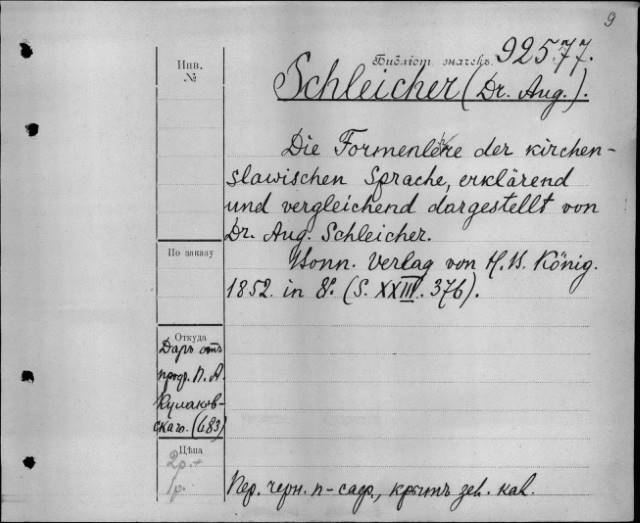 9
Библіот. значекъ. 92577.
Инв.
№
Schleicher (Dr. Aug.).
Die Formenlehre der kirchen-
slawischen Sprache, erklärend
und vergleichend dargestellt von
Dr. Aug. Schleicher.
По заказу
Bonn. Verlag von H. B. König.
1852. in 8°. (S. XXIII. 376).
Откуда
Даръ отъ
проф. П. А.
Кулаков-
скаго. (683)
Цѣна
2р.
1р.
Пер. черн. п-